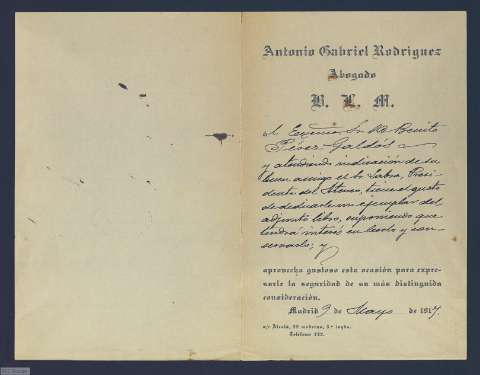 Antonio Gabriel Rodriguez
Abogado
B. L. M.
al Excmo Sr D. Benito
Pérez Galdós
y atendiendo indicación de su
buen amigo el Sr Labra, Presi
dente del Ateneo, tiene el gusto
de dedicarle un ejemplar del
adjunto libro, suponiendo que
tendrá interés en leerlo y con
servarlo; y
aprovecha gustoso esta ocasión para expre-
sarle la seguridad de su más distinguida
consideración.
Madrid 9 de Mayo de 1917.
s/c Alcalá, 99 moderno, 3.º izqda.
Teléfono